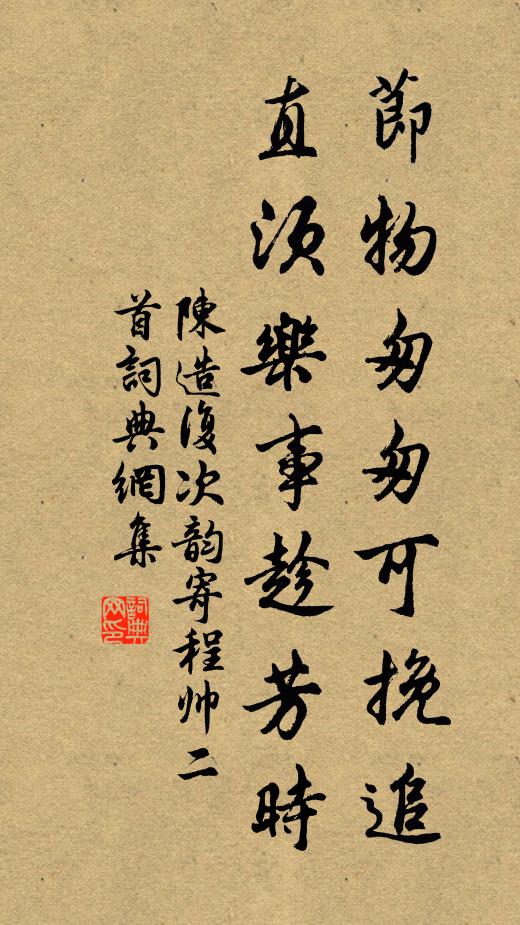 節物匆匆可挽追
直須樂事趁芳時
陳造復次韵寄程帅二
首詞典網集
詞典
网印